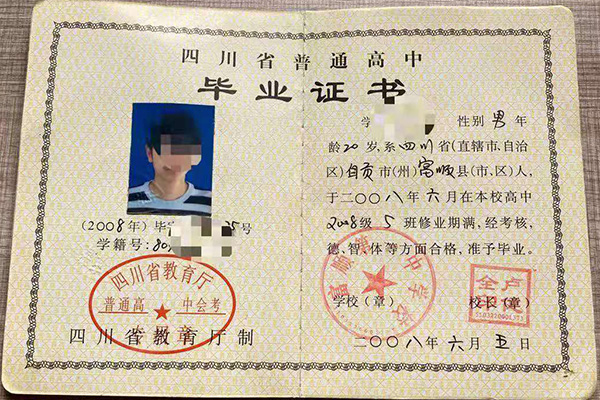 四川省普通高中
毕业证书
学 性别 男 年
龄 20 岁, 系 四川 省(直辖市、自治
区) 自贡 市(州) 富顺 县(市、区)人,
于二〇〇八年六月在本校高中
2008级 5 班修业期满, 经考核,
德、智、体等方面合格, 准予毕业。
学校(章) 校长(章)
二〇〇八年六月五日
(2008年) 毕 25号
学籍号: 80
四川省教育厅
普通高 中会考
专用章
四川省教育厅制
富顺 中学校